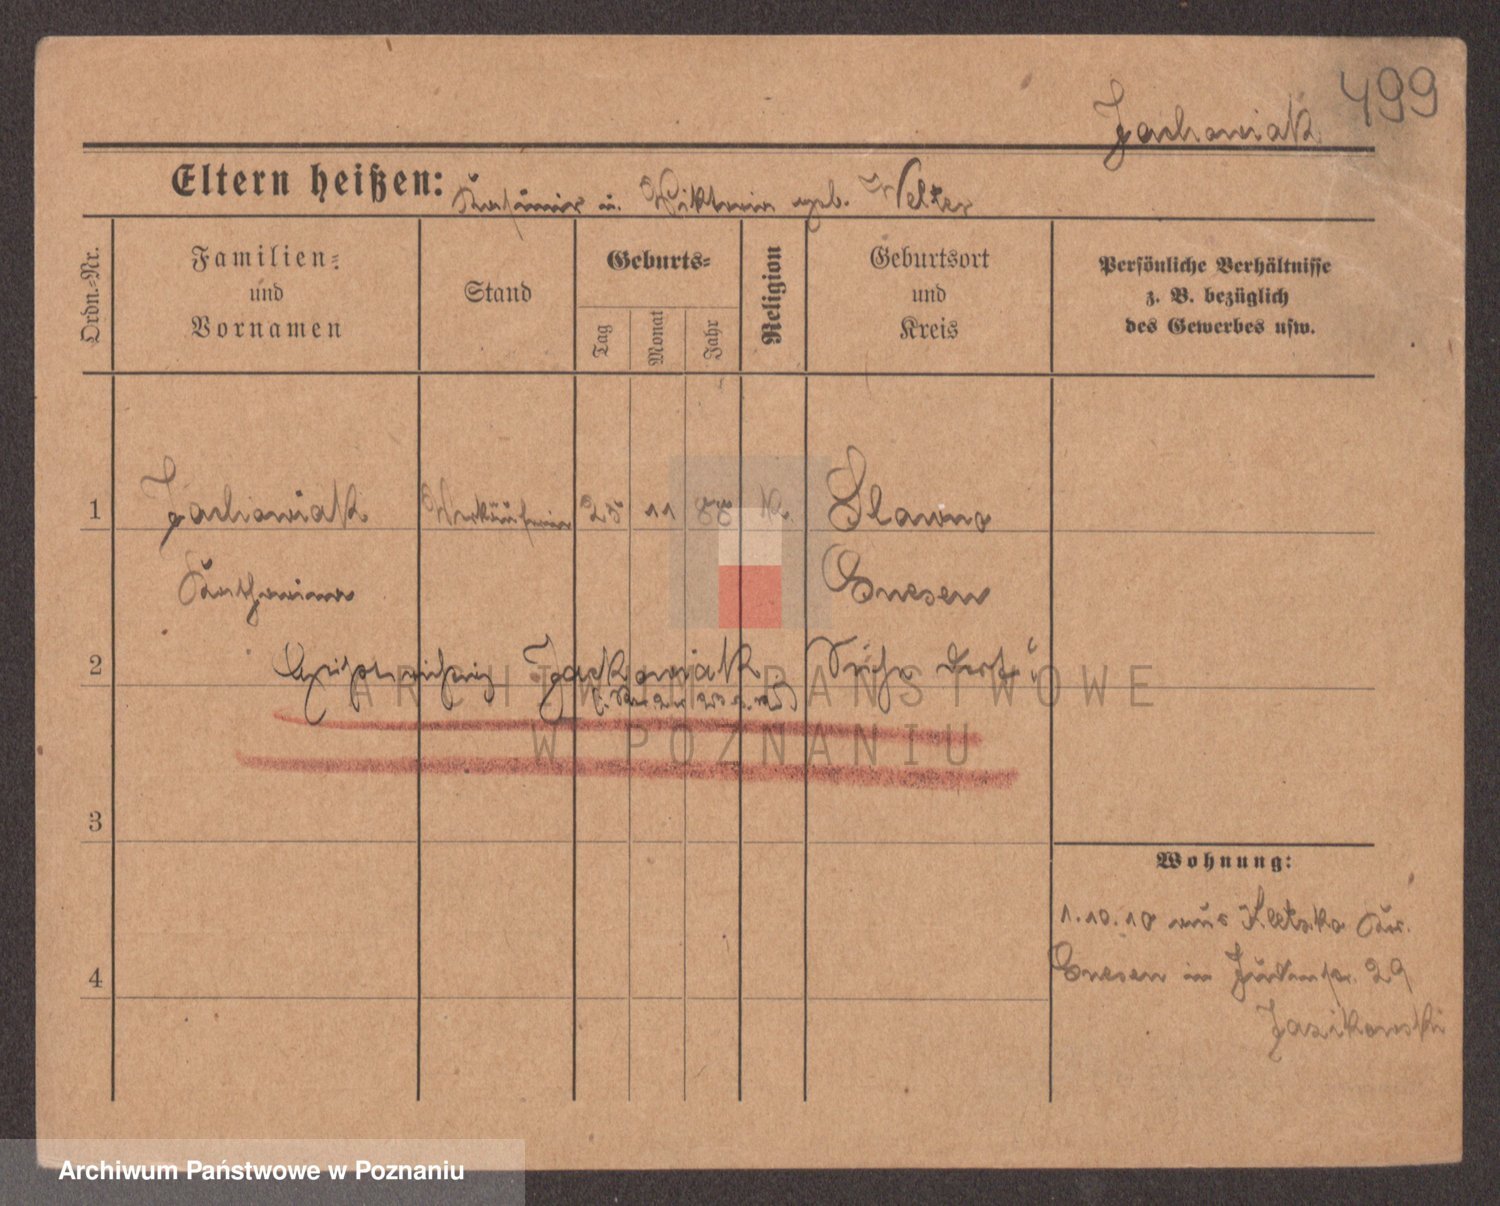 499
Jachowiak
Eltern heißen: Kasimir u. Viktoria geb. Welzer
Ordn.=Nr.
Familien=
und
Vornamen
Stand
Geburts=
Tag
Monat
Jahr
Religion
Geburtsort
und
Kreis
Persönliche Verhältnisse
z. B. bezüglich
des Gewerbes usw.
1 Jachowiak Verkäuferin 25 11 88 K. Slawno
Katharina Gnesen
2 Jackowiak. Siehe dort
ARCHIWUM PAŃSTWOWE
W POZNANIU
3
Wohnung:
1.10.10 aus Kletzko Kr.
4
Gnesen in Judenstr. 29
Jasikowski
Archiwum Państwowe w Poznaniu